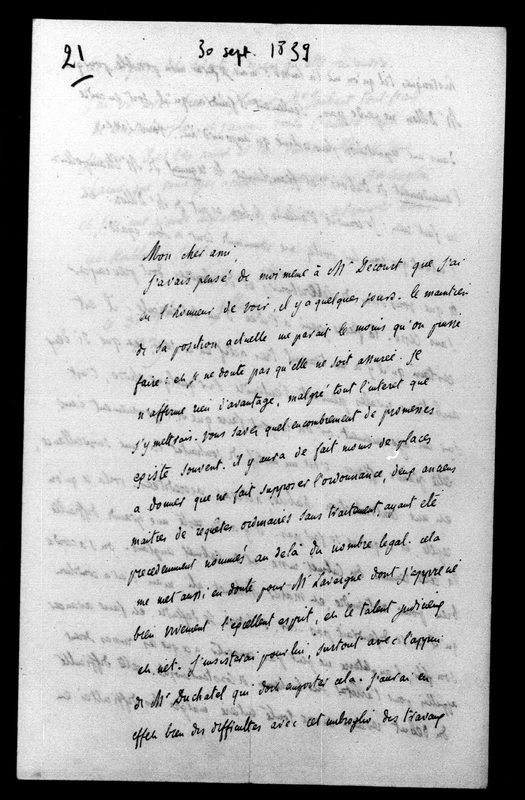 21
30 sept. 1839
Mon cher ami,
j'avais pensé de moi même à Mr Decourt que j'ai
eu l'honneur de voir, il y a quelques jours. le maintien
de sa position actuelle me parait le moins qu'on puisse
faire: et je ne doute pas qu'elle ne soit assurée. Je
n'affirme rien d'avantage, malgré tout l'interet que
j'y mettrais. vous savez quel encombrement de promesses
existe souvent. il y aura de fait moins de places
a donner que ne fait supposer l'ordonnance, deux anciens
maitres de requetes ordinaires sans traitement, ayant été
precedemment nommés au delà du nombre legal. cela
me met aussi en doute pour Mr Lavergne dont j'apprecie
bien vivement l'excellent esprit, et le talent judicieux
et net. j'insisterai pour lui, surtout avec l'appui
de Mr Duchatel qui doit emporter cela. j'aurai en
effet bien des difficultés avec cet imbroglio des travaux